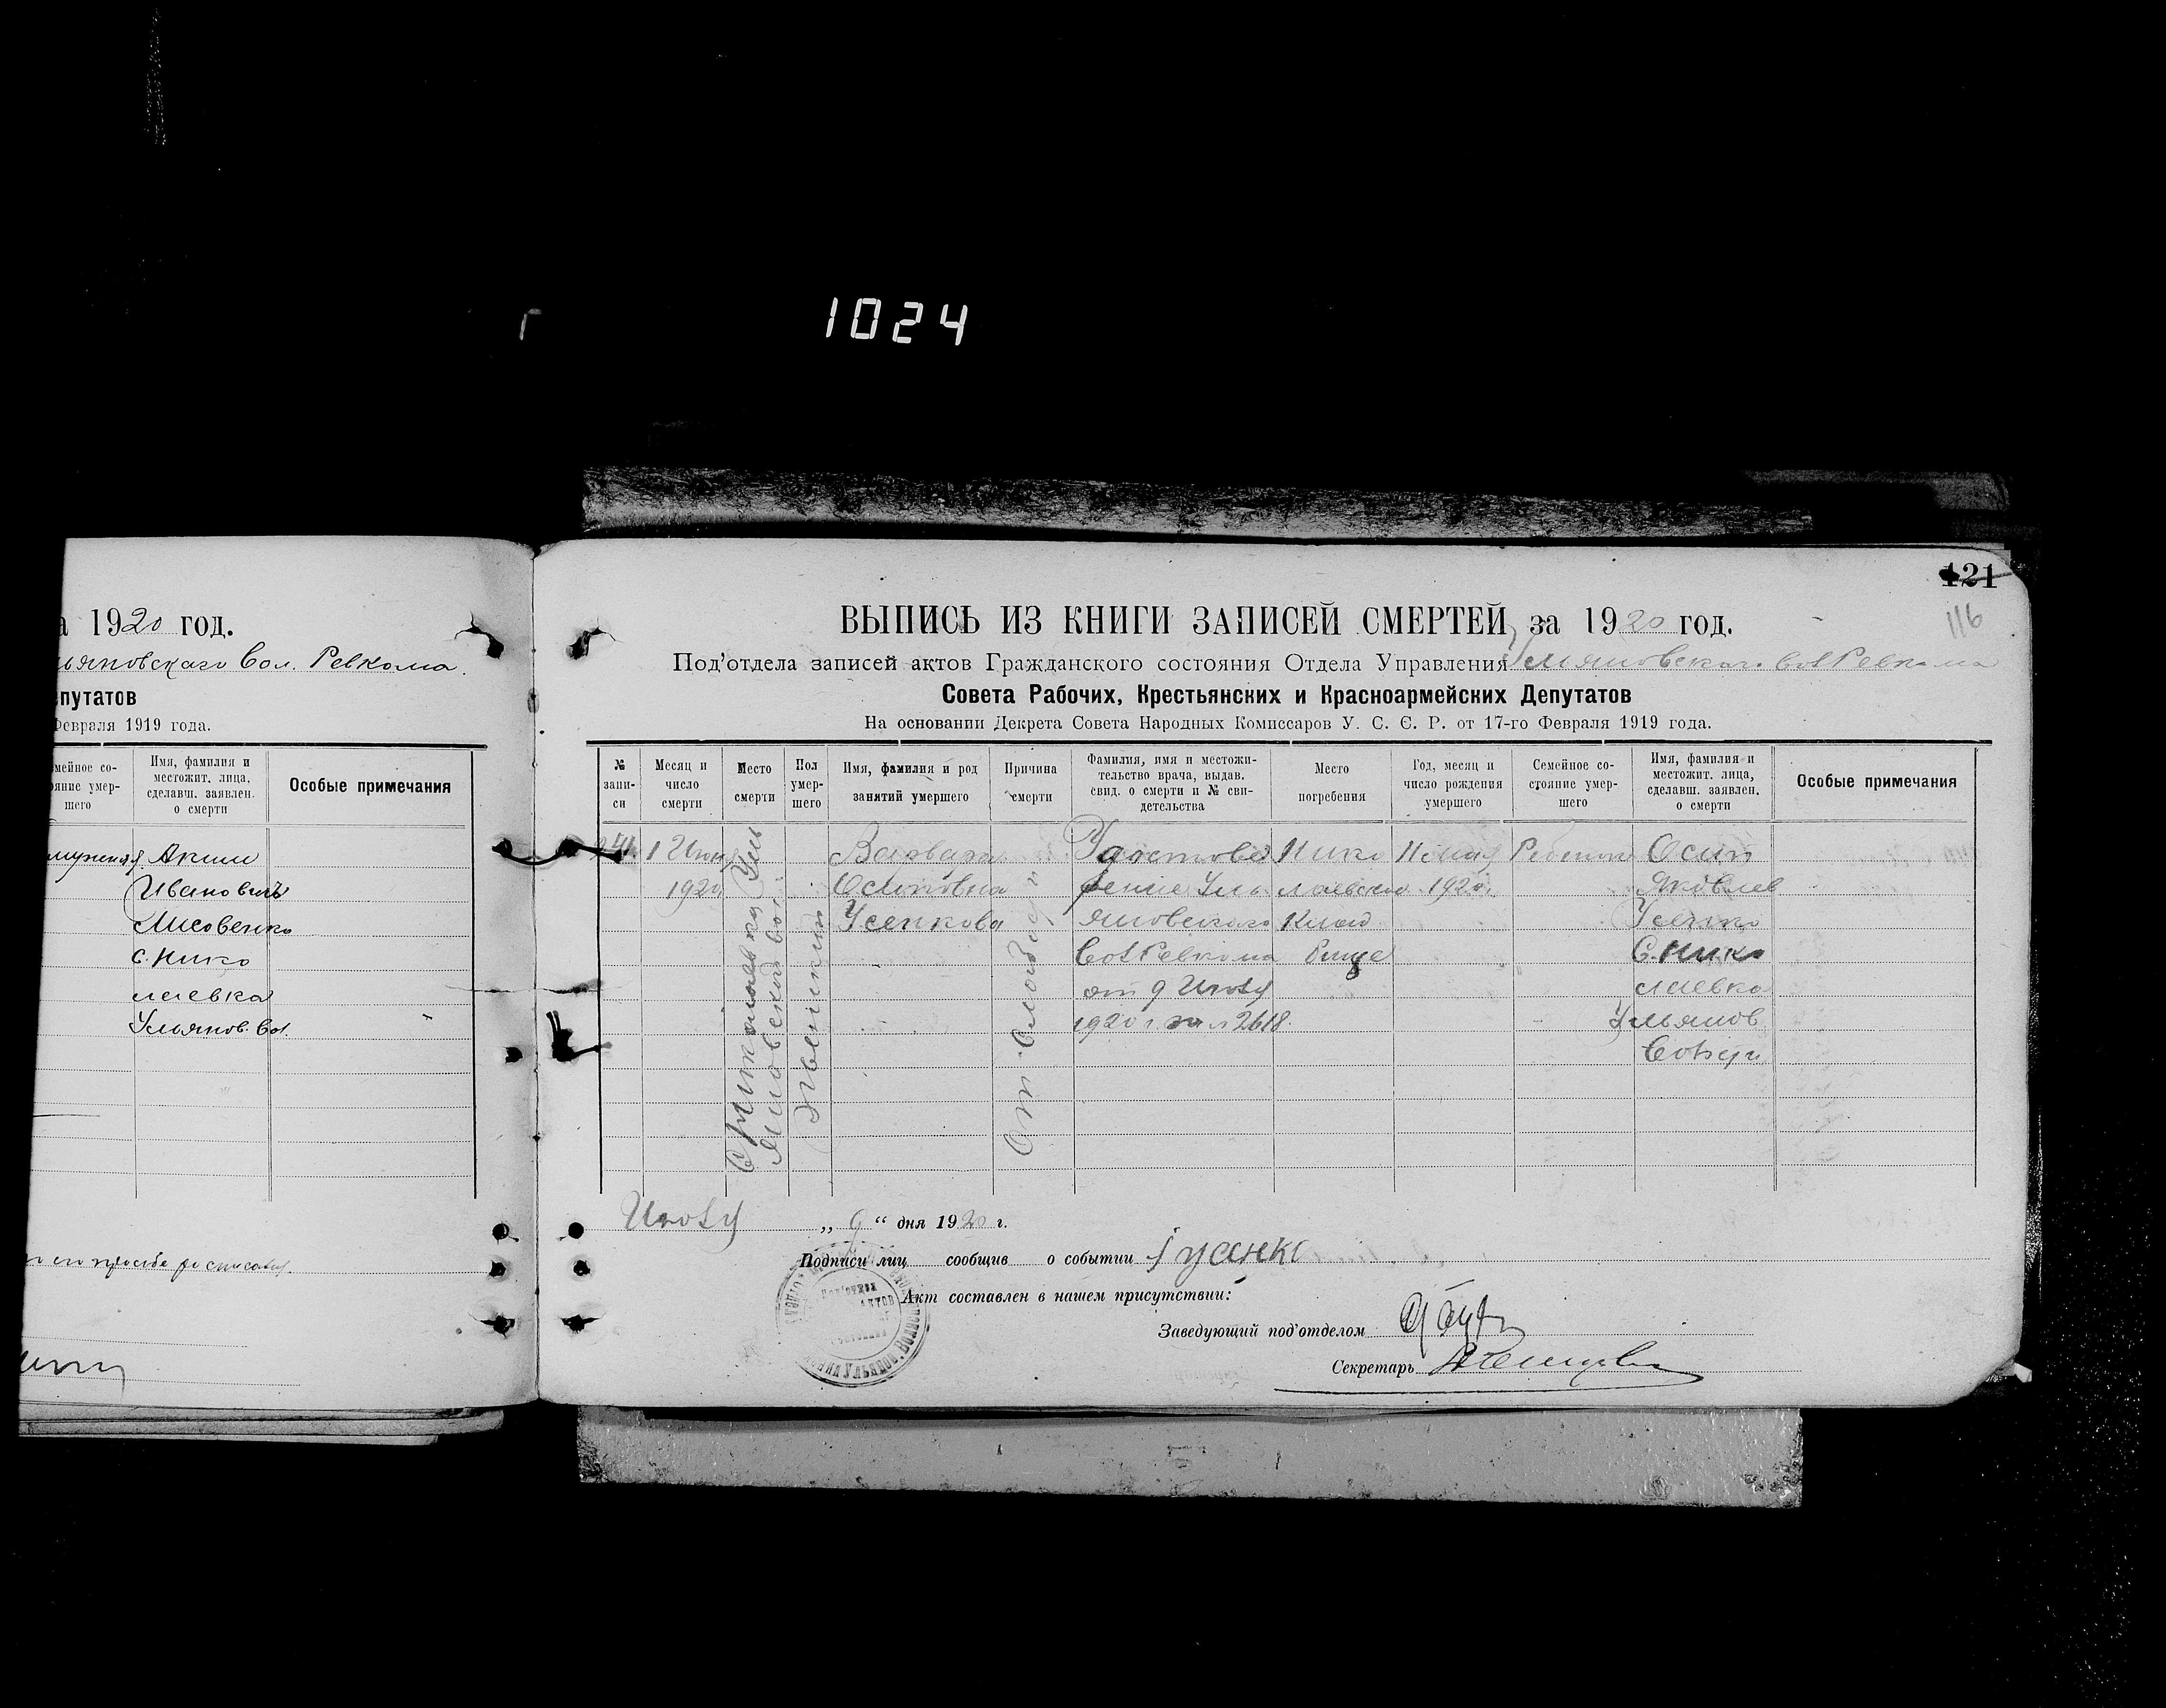 1024
а 1920 год.
льяновскаго Вол. Ревкома.
епутатов
Февраля 1919 года.
мейное со-
ояние умер-
шего
Имя, фамилия и
местожит. лица,
сделавш. заявлен.
о смерти
Особые примечания
Аким
Ивановичъ
Лисовенко
с. Нико
лаевка
Ульянов. Вол.
121
116
ВЫПИСЬ ИЗ КНИГИ ЗАПИСЕЙ СМЕРТЕЙ за 1920 год.
Под'отдела записей актов Гражданского состояния Отдела Управления Ульяновскаго Вол Ревкома
Совета Рабочих, Крестьянских и Красноармейских Депутатов
На основании Декрета Совета Народных Комиссаров У. С. С. Р. от 17-го Февраля 1919 года.
№
запи-
си
Месяц и
число
смерти
Место
смерти
Пол
умер-
шего
Имя, фамилия и род
занятий умершего
Причина
смерти
Фамилия, имя и местожи-
тельство врача, выдав.
свид. о смерти и № сви-
детельства
Место
погребения
Год, месяц и
число рождения
умершего
Семейное со-
стояние умер-
шего
Имя, фамилия и
местожит. лица,
сделавш. заявлен.
о смерти
Особые примечания
1 Июня
1920
С Николаевка Уль
яновской вол.
Женский
Варвара
Осиповна
Усенкова
От слабости
Удостове
рение Уль
яновскаго
Вол Ревкома
от 9 Июля
1920 г за № 2618.
Нико
лаевское
Клад
бище
1920
Ребенок
Осип
Яковлев
Усенко
С. Нико
лаевка
Ульянов
Волости
Июля „ 9 “ дня 1920 г.
Подписи лиц сообщив о событии
Акт составлен в нашем присутствии:
Заведующий под'отделом
Секретарь